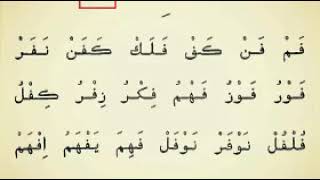 فَمْ فَنْ كَفْ فَلَكْ كَفَنْ نَفَرْ
فَوْرُ فَوْزُ فَهْمُ فِكْرُ زِفْرُ كِفْلُ
فُلْفُلْ نَوْفَرْ نَوْفَلْ فَهِمَ يَفْهَمُ اِفْهَمْ